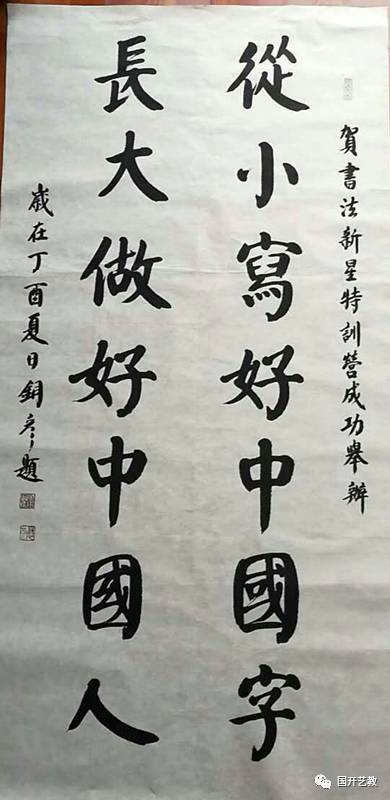 賀書法新星特訓營成功舉辦
從小寫好中國字
長大做好中國人
歲在丁酉夏日銅彥題
国开艺教